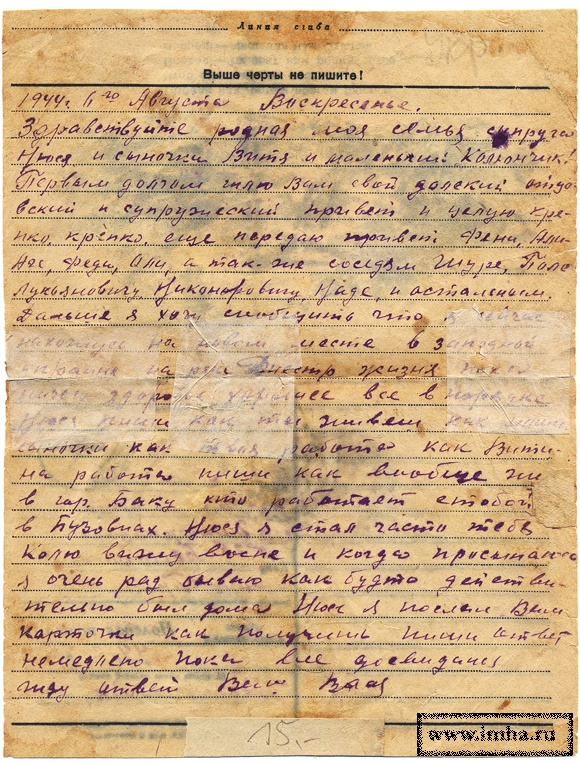 Линия сгиба
Выше черты не пишите!
1944г. 6го Августа Воскресенье.
Здравствуйте родная моя семья, супруга
Нюся и сыночки Витя и маленький Колюнчик!
Первым долгом шлю Вам свой далский отцов-
ский и супружеский привет и целую кре-
пко, крепко, еще передаю привет Фени,
Феди, Оли, а так-же соседям Шуре,
Лукьяновичу, Никоноровичу, Наде, и остальным.
Дальше я хочу сообщить что я сейчас
нахожусь на новом месте в западной
украине на реки Днестр жизня пока
здоровье хорошее все в порядке
Нюся пиши как ты живеш как
сыночки как твоя работа как Вити-
на работа пиши как вообще жи
в гор. Баку кто работает стобой
в Бузовнах. Нюся я стал часто тебя
Колю вижу восне и когда просыпаюсь
я очень рад бываю как будто действи-
тельно был дома Нюся я послал Вам
карточки как получишь пиши ответ
немедлено пока все досвидания
жду ответ Ваш
15.-
www.imha.ru